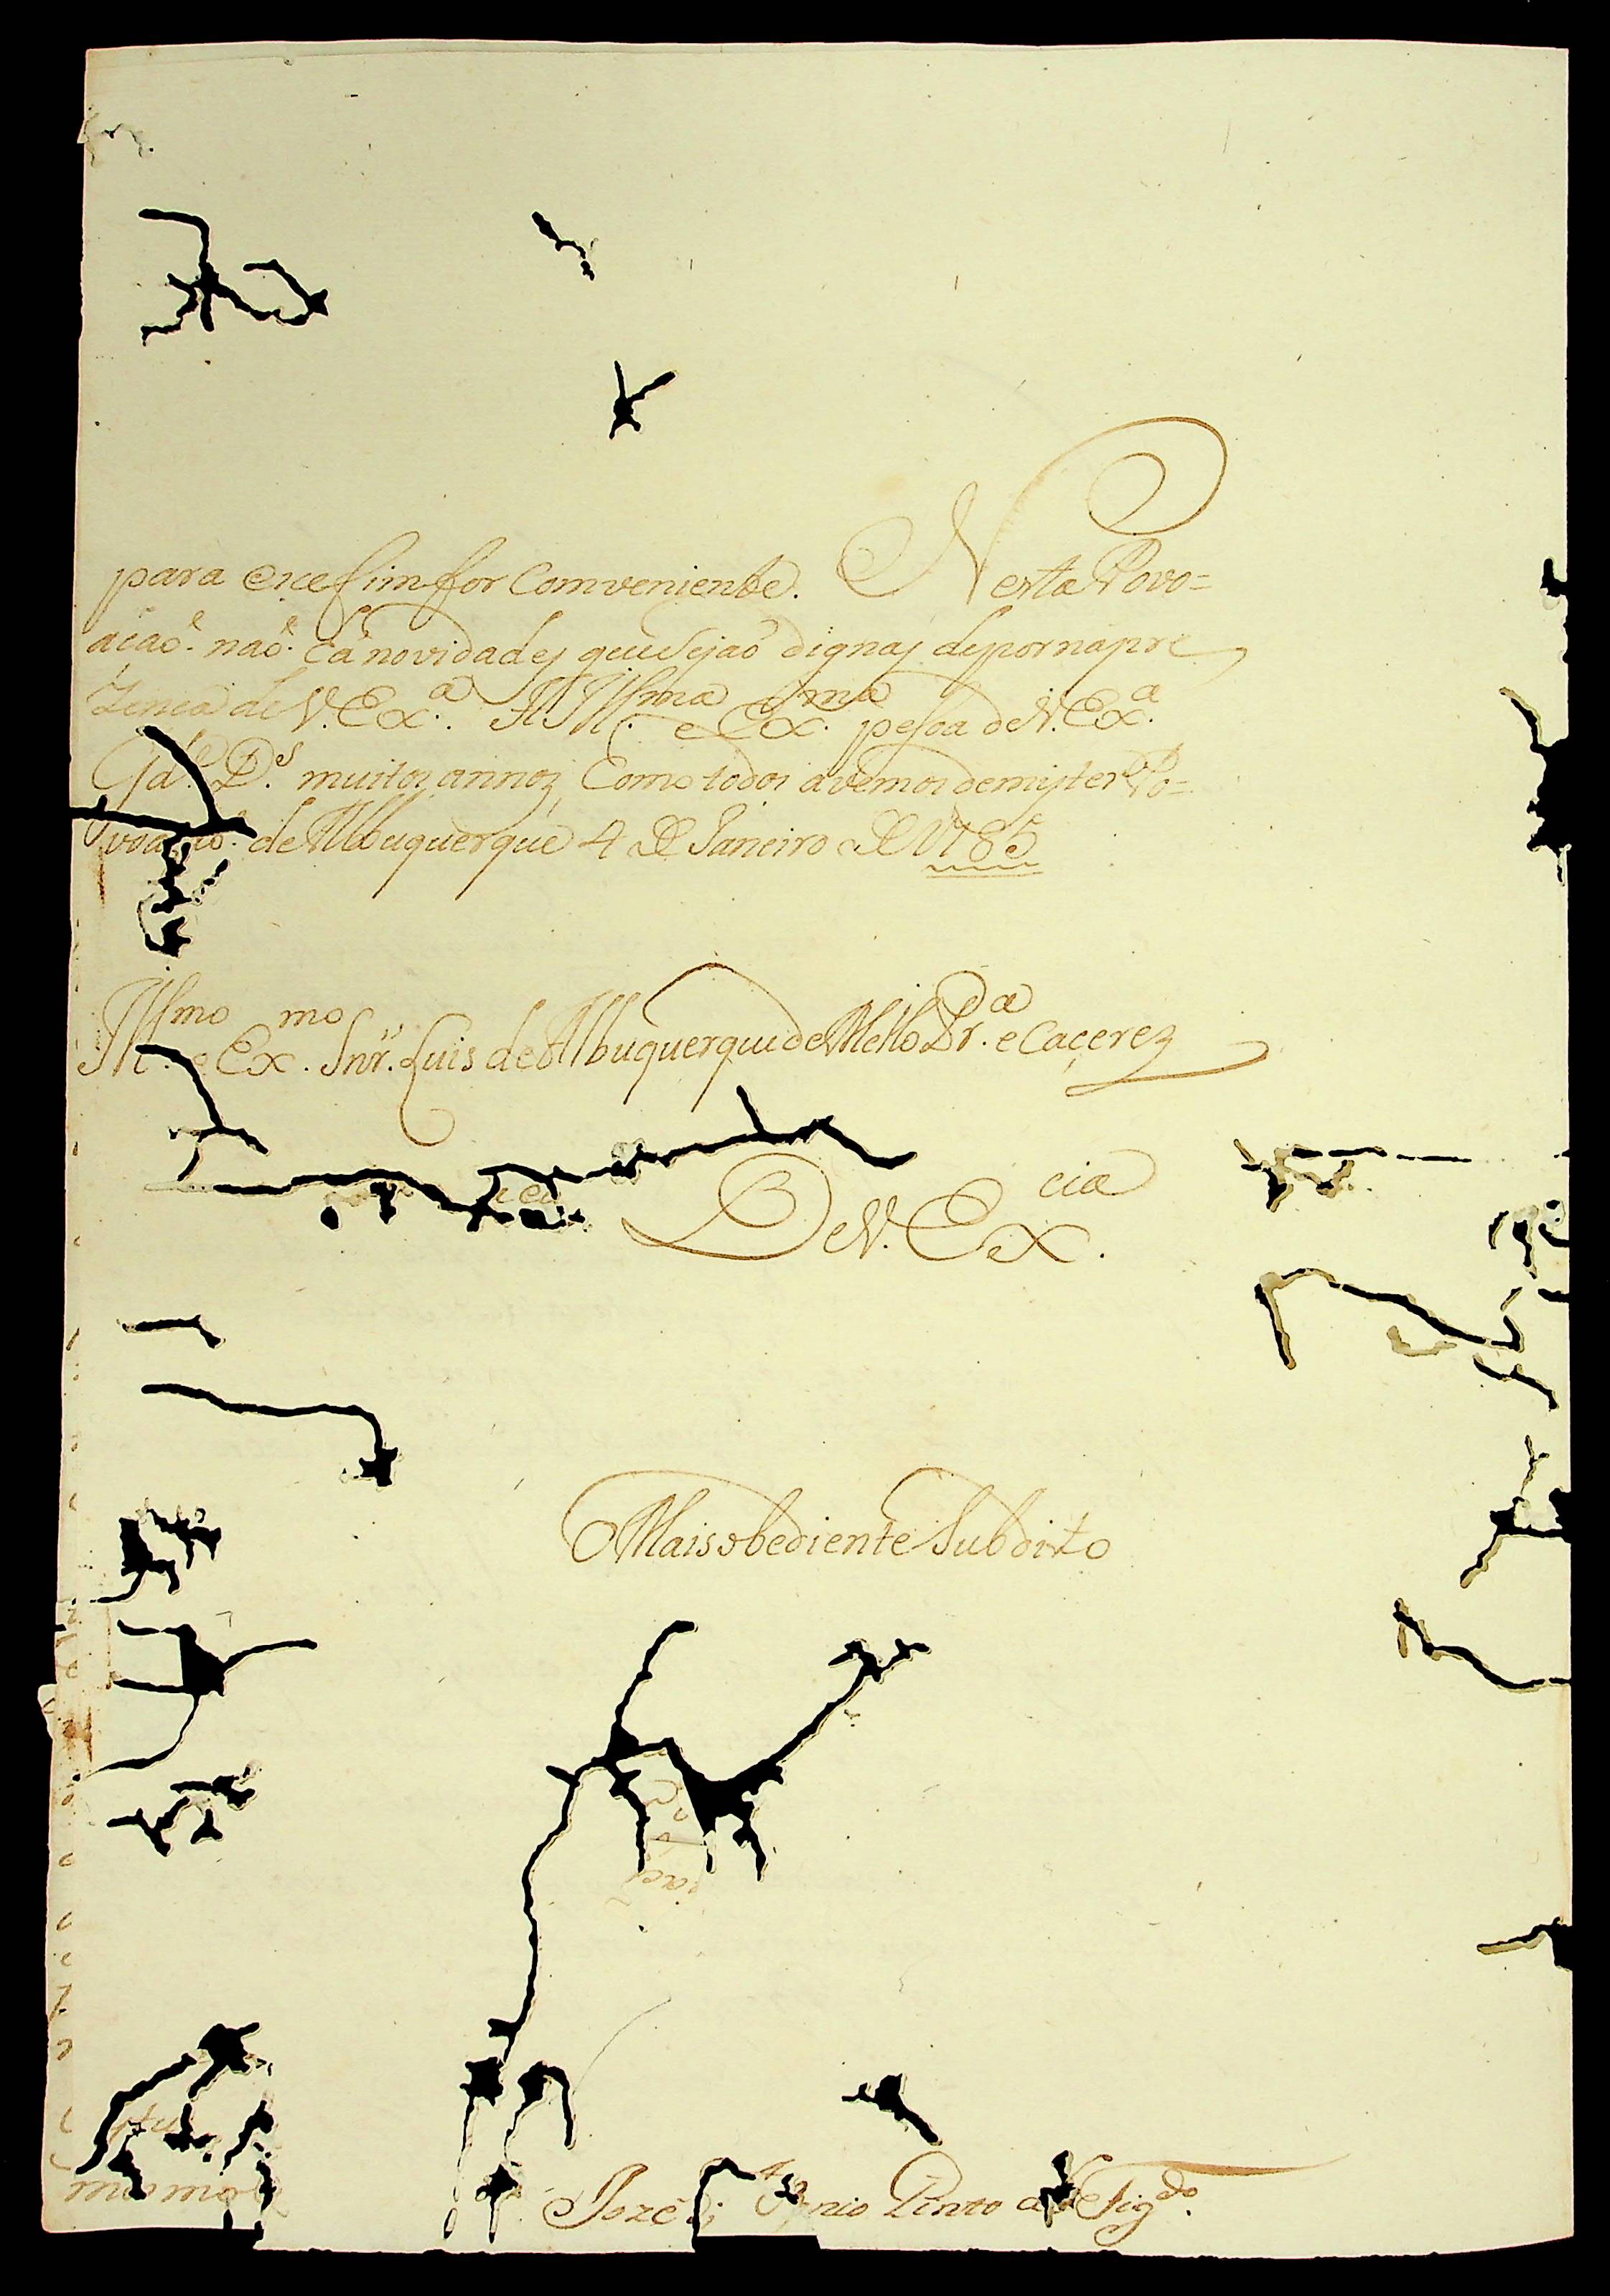 para ece fim for Comveniente. Nesta Povo=
açaõ. naõ. ha novidades que Sejaõ dignas depor na pre
Zenca de V. Exª. A Illma e Exma pesoa de V. Exª.
Gde. Ds. muitos annos, Como todos avemos demister Po=
voacaõ. de Albuquerque 4 De Janeiro De 1785
Illmo e Exmo. Snr. Luis de Albuquerque de Mello Prª. e Caçerez
De V. Excia.
Mais obediente Subdito
mesmo
Joze nio Pinto de Figdo.